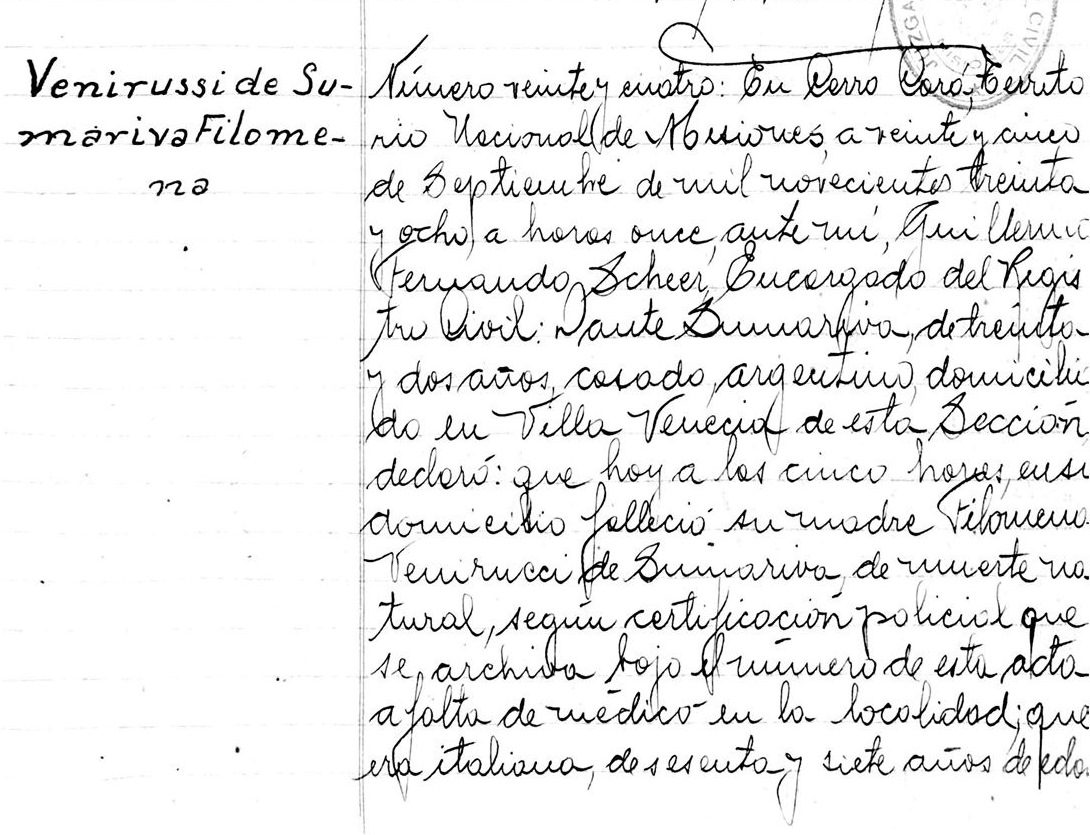 Venirussi de Su-
mariva Filome-
na
JUZGA
CIVIL
Número veinte y cuatro: En Cerro Corá, Territo
rio Nacional de Misiones, a veinte y cinco
de Septiembre de mil novecientos treinta
y ocho, a horas once, ante mí, Guillermo
Fernando Scheer, Encargado del Regis
tro Civil: Dante Sumariva, de treinta
y dos años, casado, argentino, domicilia
do en Villa Venecia de esta Sección
declaró: que hoy a las cinco horas, en su
domicilio falleció su madre Filomena
Venirucci de Sumariva, de muerte na
tural, según certificación policial que
se archiva bajo el número de esta acta
a falta de médico en la localidad; que
era italiana, de sesenta y siete años de eda